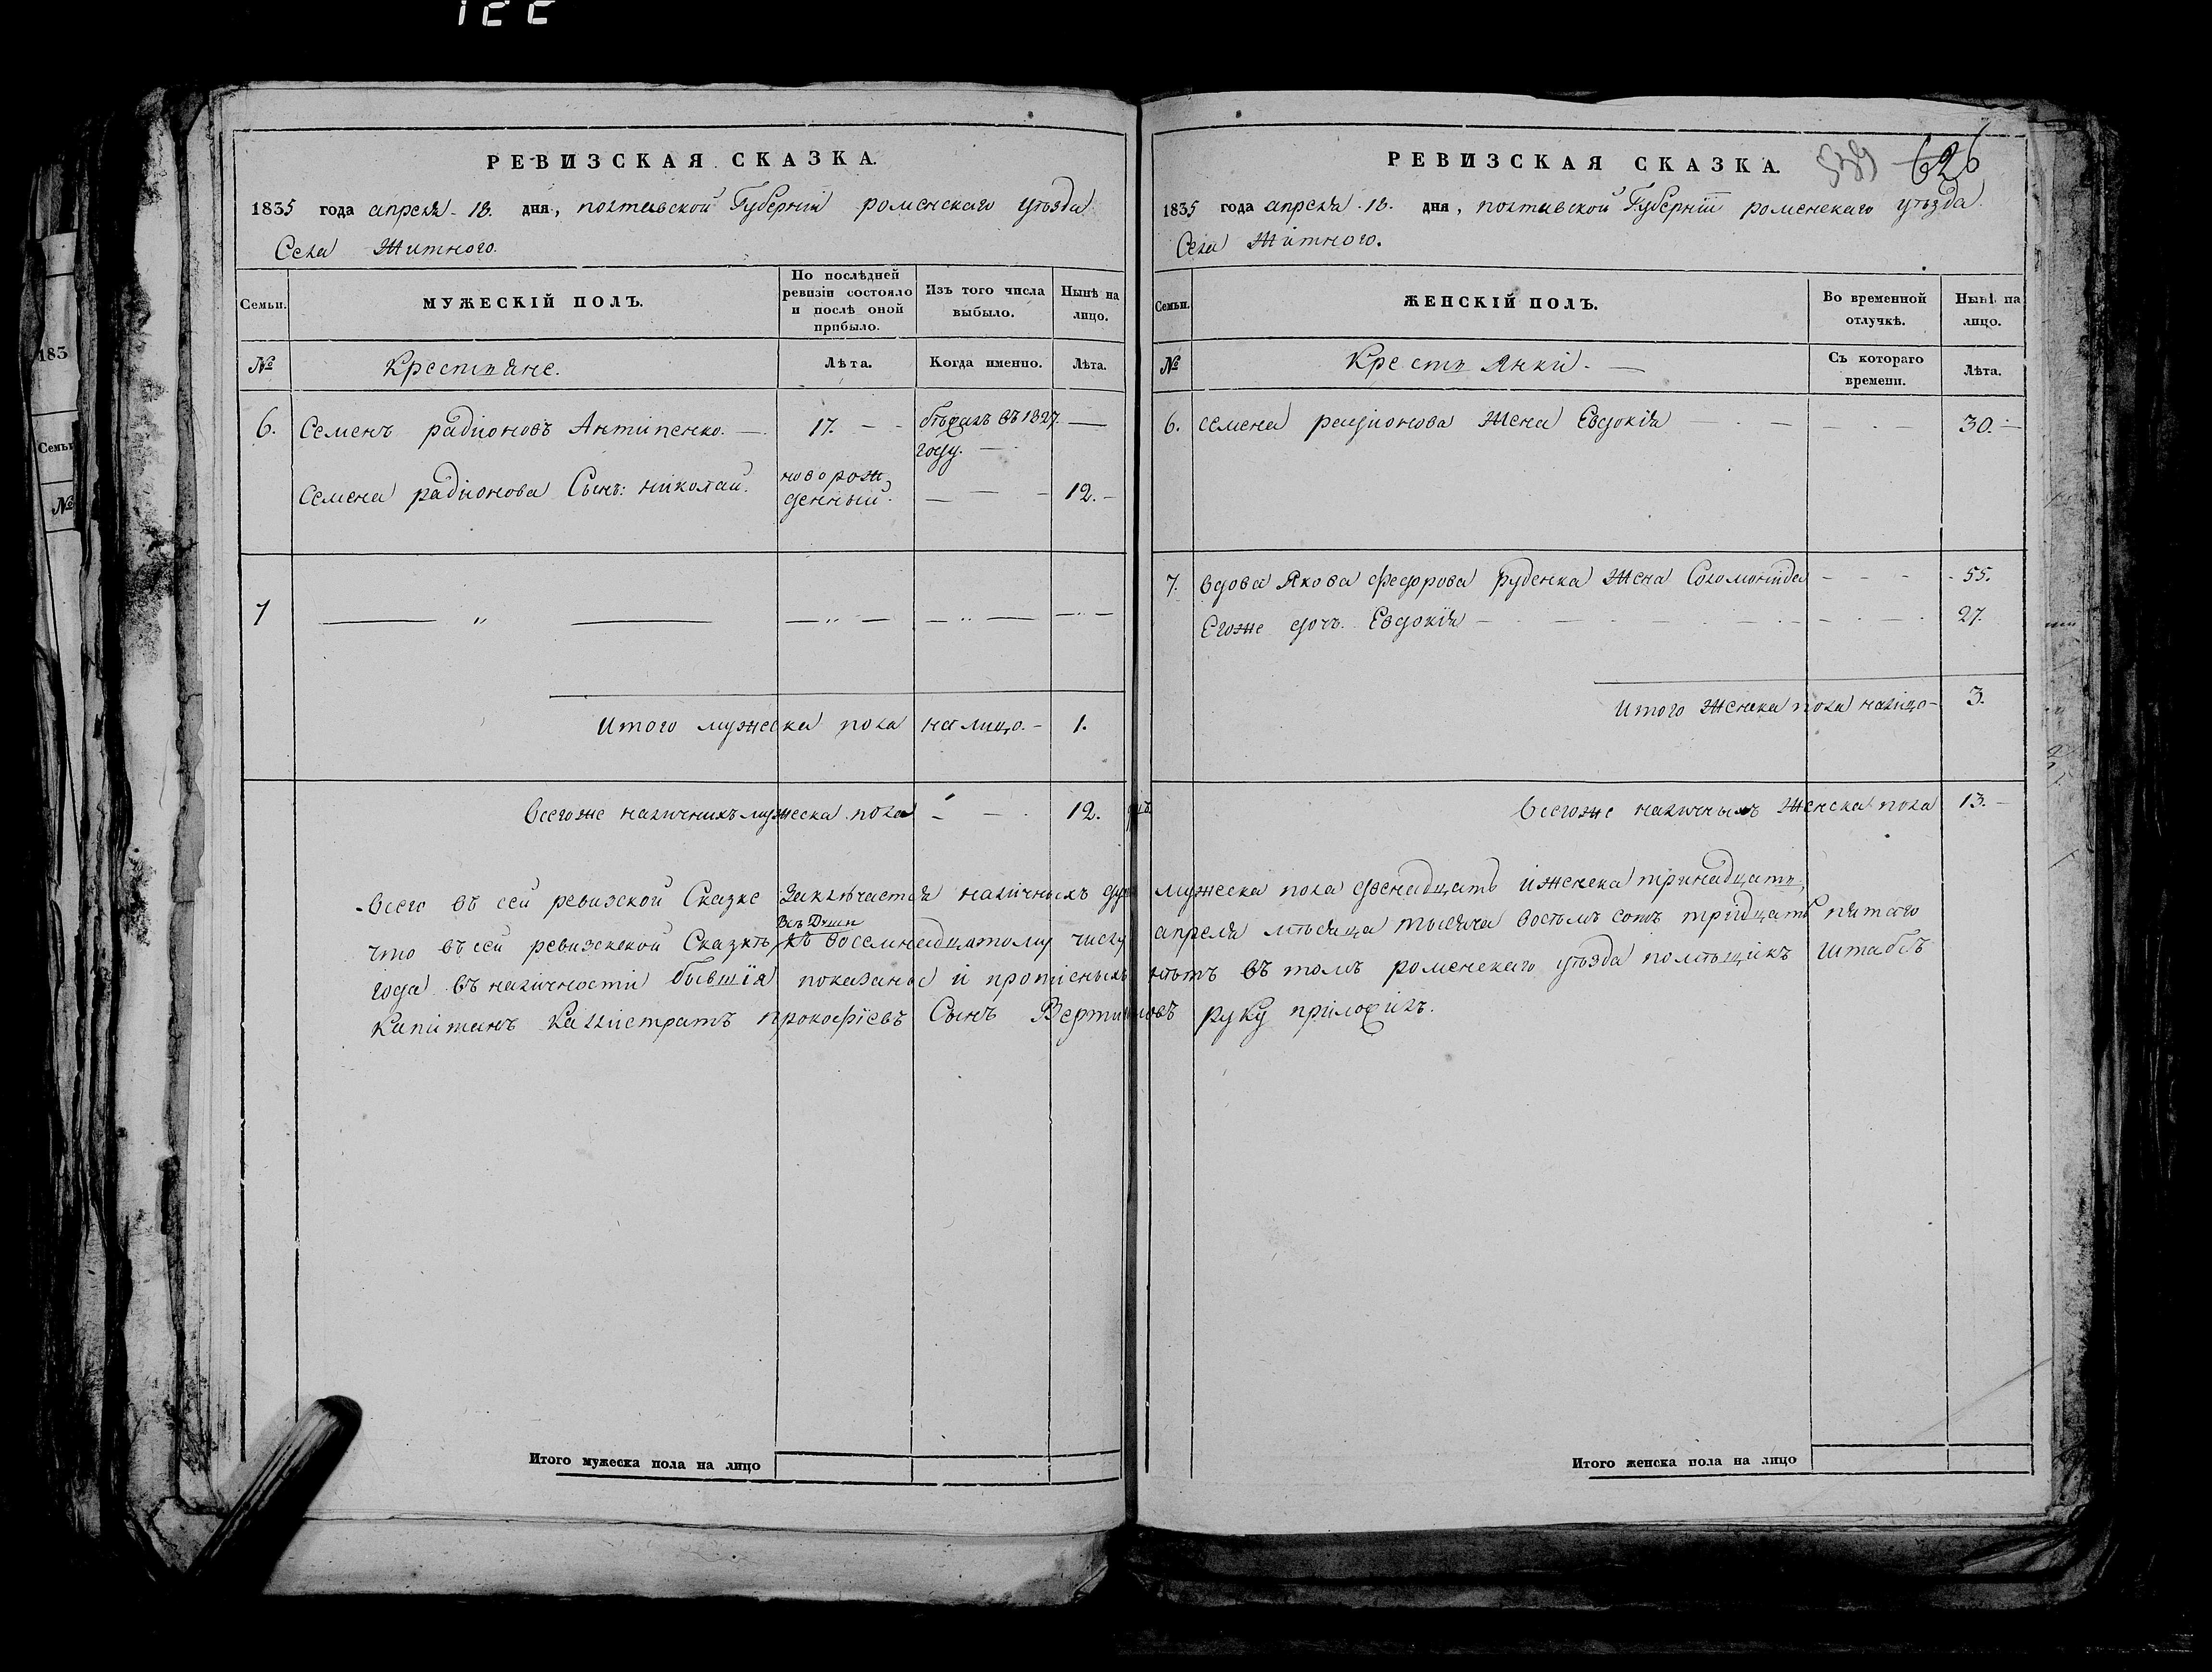 РЕВИЗСКАЯ СКАЗКА.
1835 года апреля 18. дня, полтавской Губерніи роменскаго уѣзда
Села Житного.
Семьи.
МУЖЕСКІЙ ПОЛЪ.
По послѣдней ревизіи состояло и послѣ оной прибыло.
Изъ того числа выбыло.
Нынѣ на лицо.
№
Крестьяне.
Лѣта.
Когда именно.
Лѣта.
6. Семенъ радионовъ Антипенко. 17. бѣжалъ въ 1827.
году.
Семена радионова Сынъ: николай. новорож
денный. 12.
7
Итого мужеска пола на лицо. 1.
Всегоже наличныхъ мужеска пола 12.
РЕВИЗСКАЯ СКАЗКА.
626
1835 года апреля 18. дня, полтавской Губерніи роменскаго уѣзда
Села Житного.
Семьи.
ЖЕНСКІЙ ПОЛЪ.
Во временной отлучкѣ.
Нынѣ на лицо.
№
Крестьянки.
Съ котораго времени.
Лѣта.
6. Семена радионова Жена Евдокія 30.
7. Вдова Якова федорова руденка Жена Соломонида 55.
Егоже дочь Евдокія 27.
Итого Женска пола налицо 3.
Всегоже наличныхъ Женска пола 13.
Всего въ сей ревизской Сказке Заключается наличныхъ душъ мужеска пола двенадцать и женска тринадцать,
Всѣ Души
что въ сей ревизской Сказкѣ къ восемнадцатому числу апреля мѣсяца тысяча восемь сотъ тридцать пятаго
года въ наличности бывшія показаны и прописныхъ нѣтъ въ томъ роменскаго уѣзда помѣщикъ Штабсъ
Капитанъ Калистратъ прокофіевъ Сынъ руку приложилъ.
Итого мужеска пола на лицо
Итого женска пола на лицо
185
Семьи
№